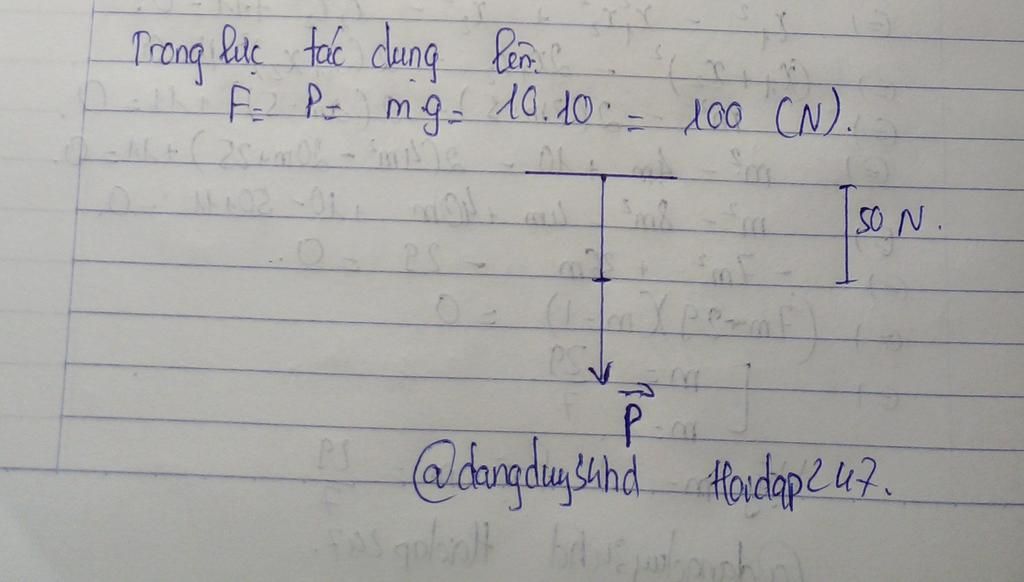 Trong lực tác dụng lên.
F = P = m.g = 10.10 = 100 (N).
50 N.
P
@dangduy54hd Hoidap247.